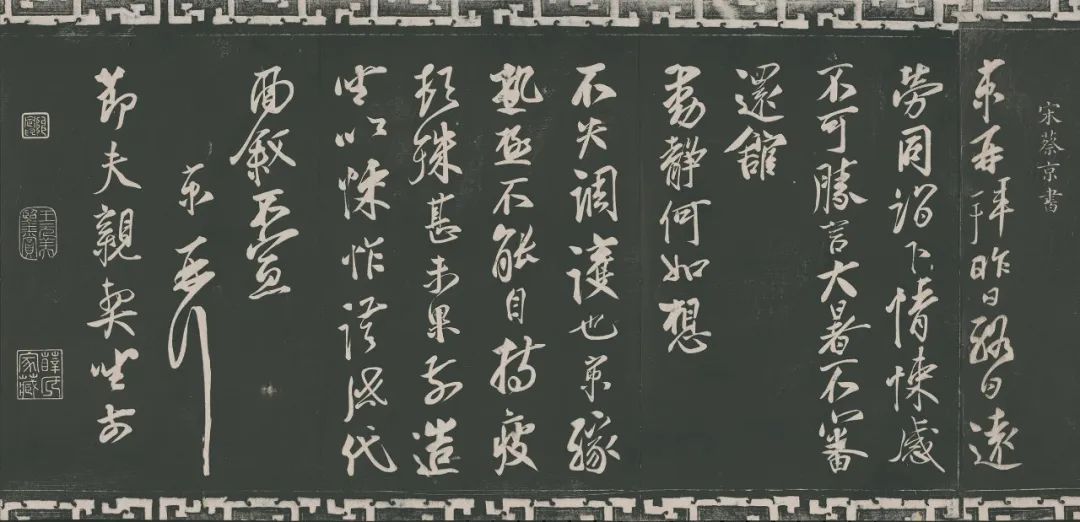 宋蔡京書
京再拜昨日終日遠
勞同詣下情悚感
不可勝言大暑不審
還舘
動靜何如想
不失調護也京緣
熱極不能自持疲
頓殊甚未果前造
坐次悚怍謹啓代
面敘不宣
京再拜
節夫親契坐前
薛氏家藏